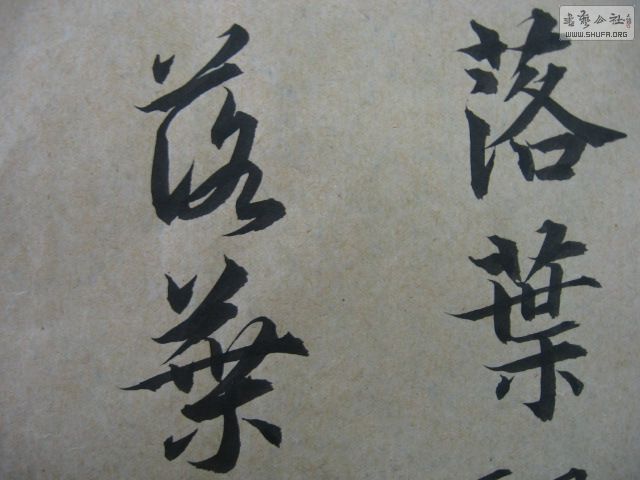 落葉
落葉
书艺公社
WWW.SHUFA.ORG